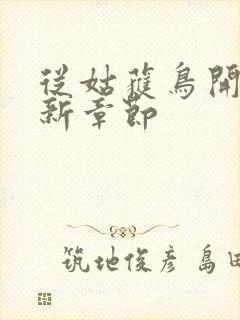 從姑獲鳥開
新章節
筑地俊彥 島田